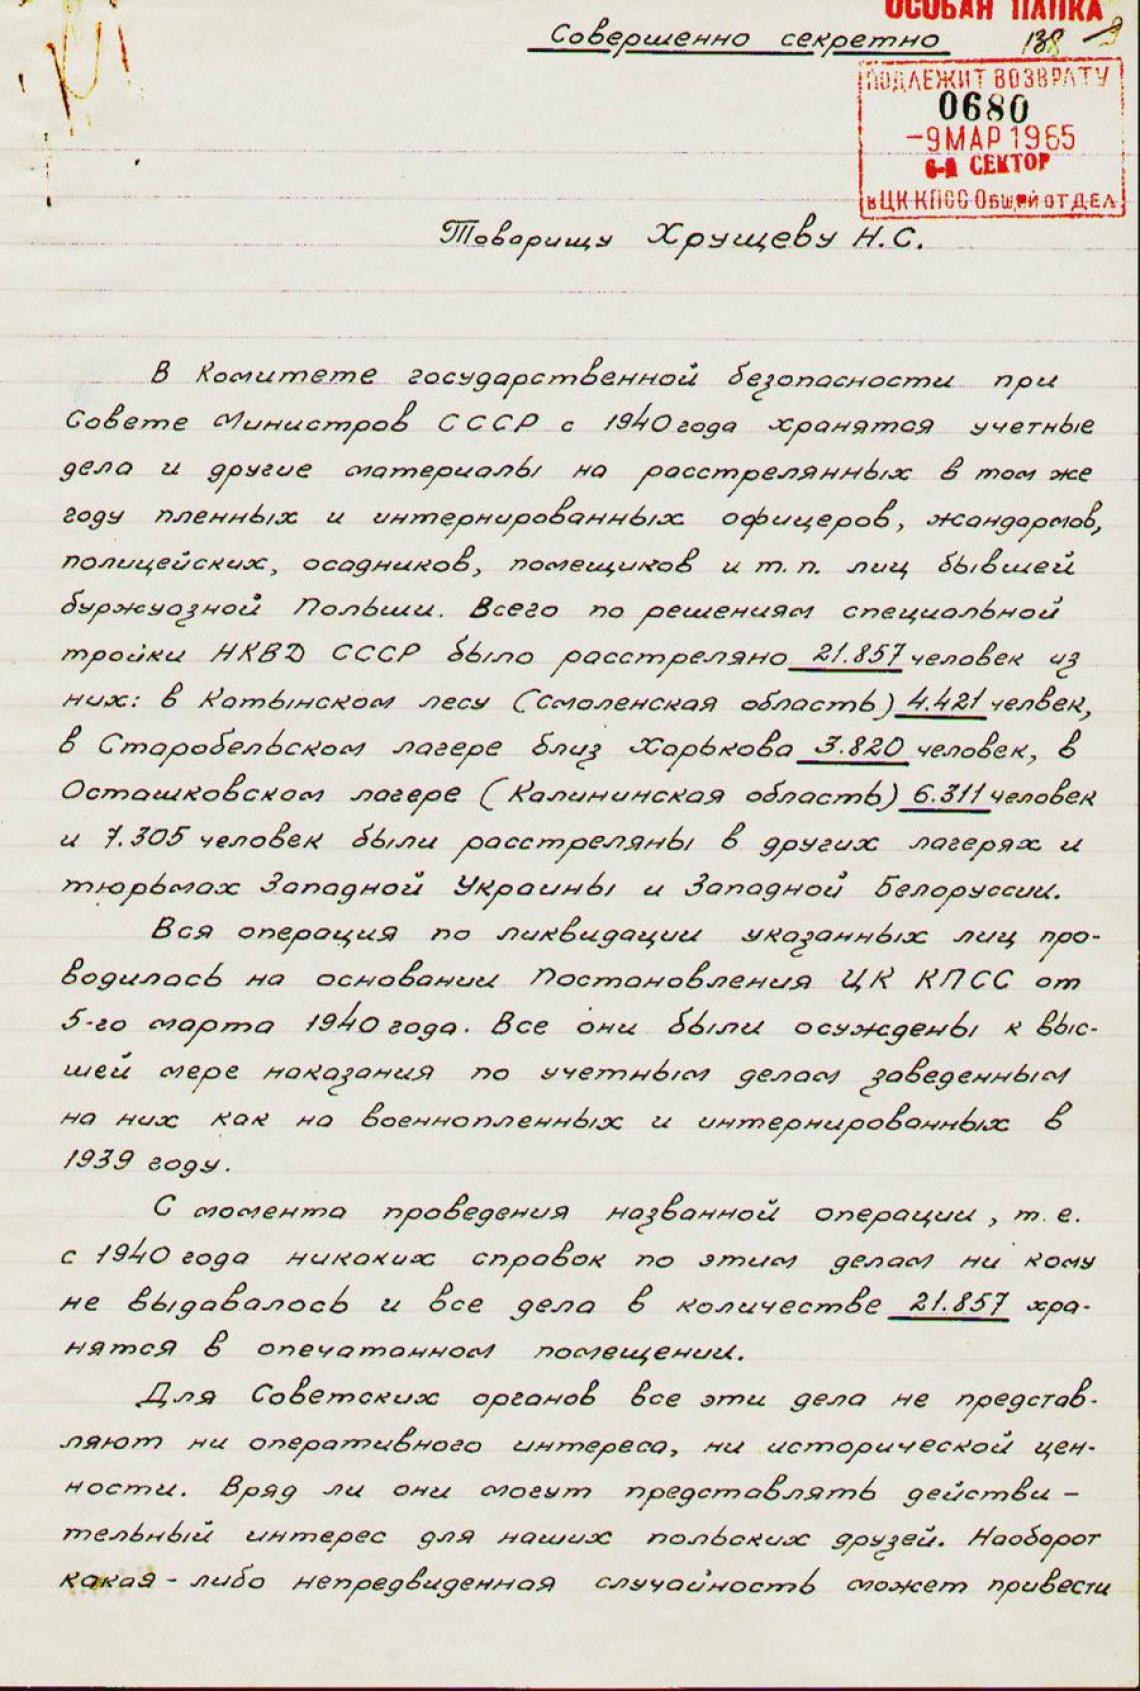 ОСОБАЯ ПАПКА
Совершенно секретно
138
ПОДЛЕЖИТ ВОЗВРАТУ
0680
-9 МАР 1965
6-й СЕКТОР
в ЦК КПСС Общий ОТДЕЛ
Товарищу Хрущеву Н.С.
В Комитете государственной безопасности при
Совете Министров СССР с 1940 года хранятся учетные
дела и другие материалы на расстрелянных в том же
году пленных и интернированных офицеров, жандармов,
полицейских, осадников, помещиков и т.п. лиц бывшей
буржуазной Польши. Всего по решениям специальной
тройки НКВД СССР было расстреляно 21.857 человек из
них: в Катынском лесу (Смоленская область) 4.421 челвек,
в Старобельском лагере близ Харькова 3.820 человек, в
Осташковском лагере (Калининская область) 6.311 человек
и 7.305 человек были расстреляны в других лагерях и
тюрьмах Западной Украины и Западной Белоруссии.
Вся операция по ликвидации указанных лиц про-
водилась на основании Постановления ЦК КПСС от
5-го марта 1940 года. Все они были осуждены к выс-
шей мере наказания по учетным делам заведенным
на них как на военнопленных и интернированных в
1939 году.
С момента проведения названной операции, т.е.
с 1940 года никаких справок по этим делам ни кому
не выдавалось и все дела в количестве 21.857 хра-
нятся в опечатанном помещении.
Для Советских органов все эти дела не представ-
ляют ни оперативного интереса, ни исторической цен-
ности. Вряд ли они могут представлять действи-
тельный интерес для наших польских друзей. Наоборот
какая-либо непредвиденная случайность может привести